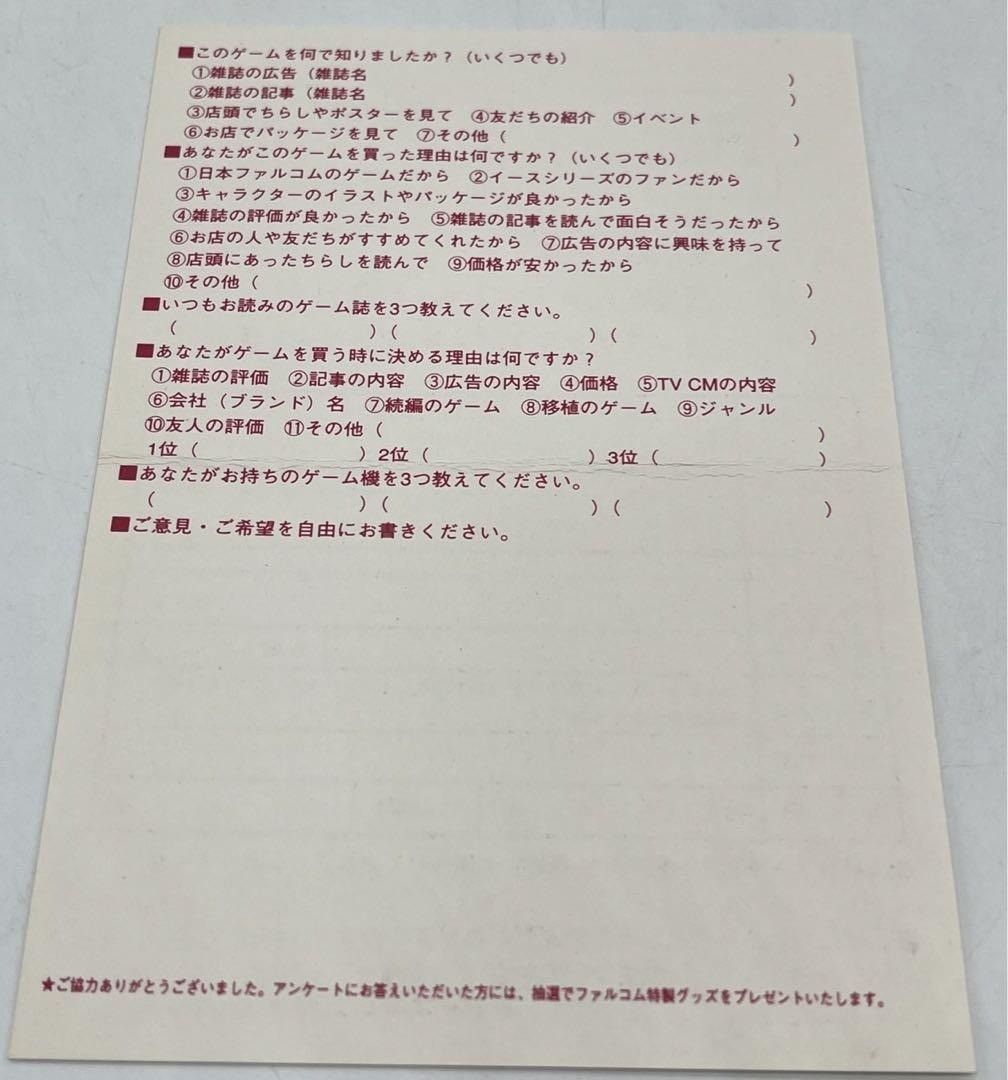 ■このゲームを何で知りましたか？（いくつでも）
①雑誌の広告（雑誌名　　　　　）
②雑誌の記事（雑誌名　　　　　）
③店頭でちらしやポスターを見て　④友だちの紹介　⑤イベント
⑥お店でパッケージを見て　⑦その他（　　　　　）
■あなたがこのゲームを買った理由は何ですか？（いくつでも）
①日本ファルコムのゲームだから　②イースシリーズのファンだから
③キャラクターのイラストやパッケージが良かったから
④雑誌の評価が良かったから　⑤雑誌の記事を読んで面白そうだったから
⑥お店の人や友だちがすすめてくれたから　⑦広告の内容に興味を持って
⑧店頭にあったちらしを読んで　⑨価格が安かったから
⑩その他（　　　　　）
■いつもお読みのゲーム誌を3つ教えてください。
（　　　　　）（　　　　　）（　　　　　）
■あなたがゲームを買う時に決める理由は何ですか？
①雑誌の評価　②記事の内容　③広告の内容　④価格　⑤TV CMの内容
⑥会社（ブランド）名　⑦続編のゲーム　⑧移植のゲーム　⑨ジャンル
⑩友人の評価　⑪その他（　　　　　）
1位（　　　　　）2位（　　　　　）3位（　　　　　）
■あなたがお持ちのゲーム機を3つ教えてください。
（　　　　　）（　　　　　）（　　　　　）
■ご意見・ご希望を自由にお書きください。
★ご協力ありがとうございました。アンケートにお答えいただいた方には、抽選でファルコム特製グッズをプレゼントいたします。